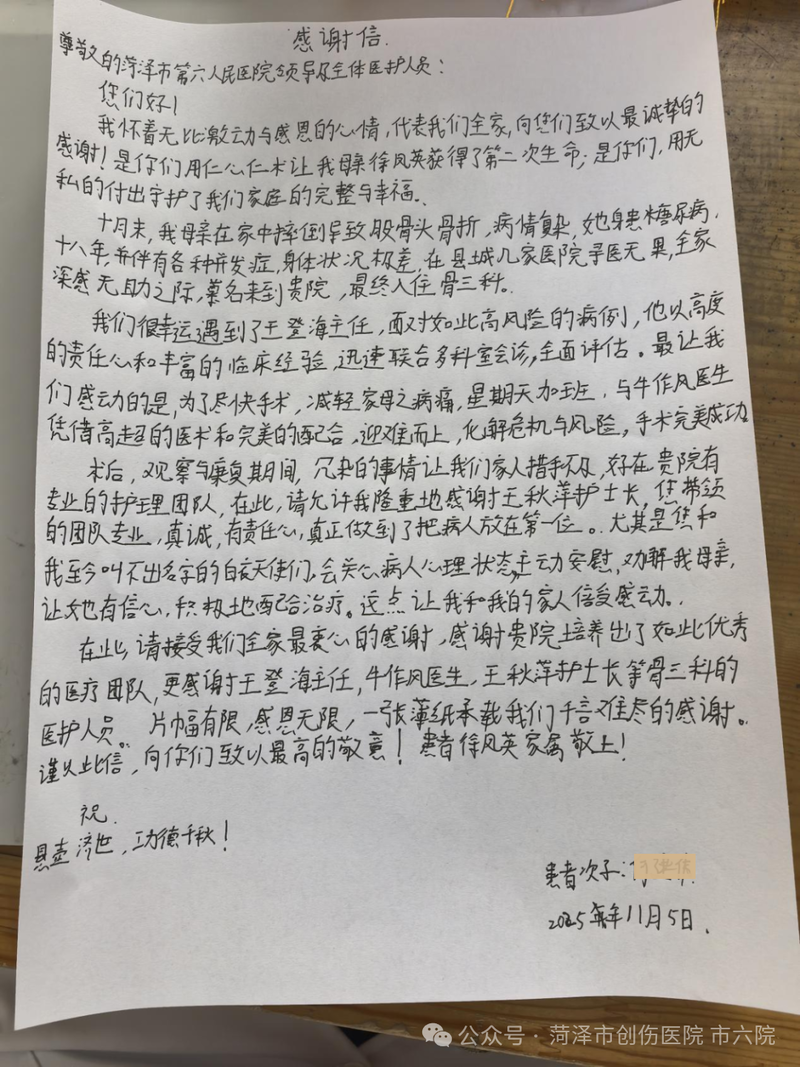 感谢信.
尊敬的菏泽市第六人民医院领导及全体医护人员：
您们好！
我怀着无比激动与感恩的心情，代表我们全家，向您们致以最诚挚的
感谢！是你们用仁心仁术让我母亲徐凤英获得了第二次生命；是你们，用无
私的付出守护了我们家庭的完整与幸福。
十月末，我母亲在家中摔倒导致股骨头骨折，病情复杂，她身患糖尿病
十八年，并伴有各种并发症，身体状况极差，在县城几家医院寻医无果，全家
深感无助之际，慕名来到贵院，最终入住骨三科。
我们很幸运遇到了王登海主任，面对如此高风险的病例，他以高度
的责任心和丰富的临床经验，迅速联合多科室会诊，全面评估。最让我
们感动的是，为了尽快手术，减轻家母之病痛，星期天加班，与牛作风医生
凭借高超的医术和完美的配合，迎难而上，化解危机与风险，手术完美成功
术后，观察与康复期间，冗杂的事情让我们家人措手不及，好在贵院有
专业的护理团队，在此，请允许我隆重地感谢王秋萍护士长，您带领
的团队专业，真诚，有责任心，真正做到了把病人放在第一位。尤其是您和
我至今叫不出名字的白衣天使们，会关心病人心理状态，主动安慰，劝解我母亲，
让她有信心，积极地配合治疗。这点让我和我的家人倍受感动。
在此，请接受我们全家最衷心的感谢，感谢贵院培养出了如此优秀
的医疗团队，更感谢王登海主任，牛作风医生，王秋萍护士长等骨三科的
医护人员。片幅有限，感恩无限，一张薄纸承载我们千言难尽的感谢。
谨以此信，向你们致以最高的敬意！患者徐凤英家属敬上！
祝
悬壶济世，功德千秋！
患者次子：
2025年11月5日.
公众号·菏泽市创伤医院 市六院